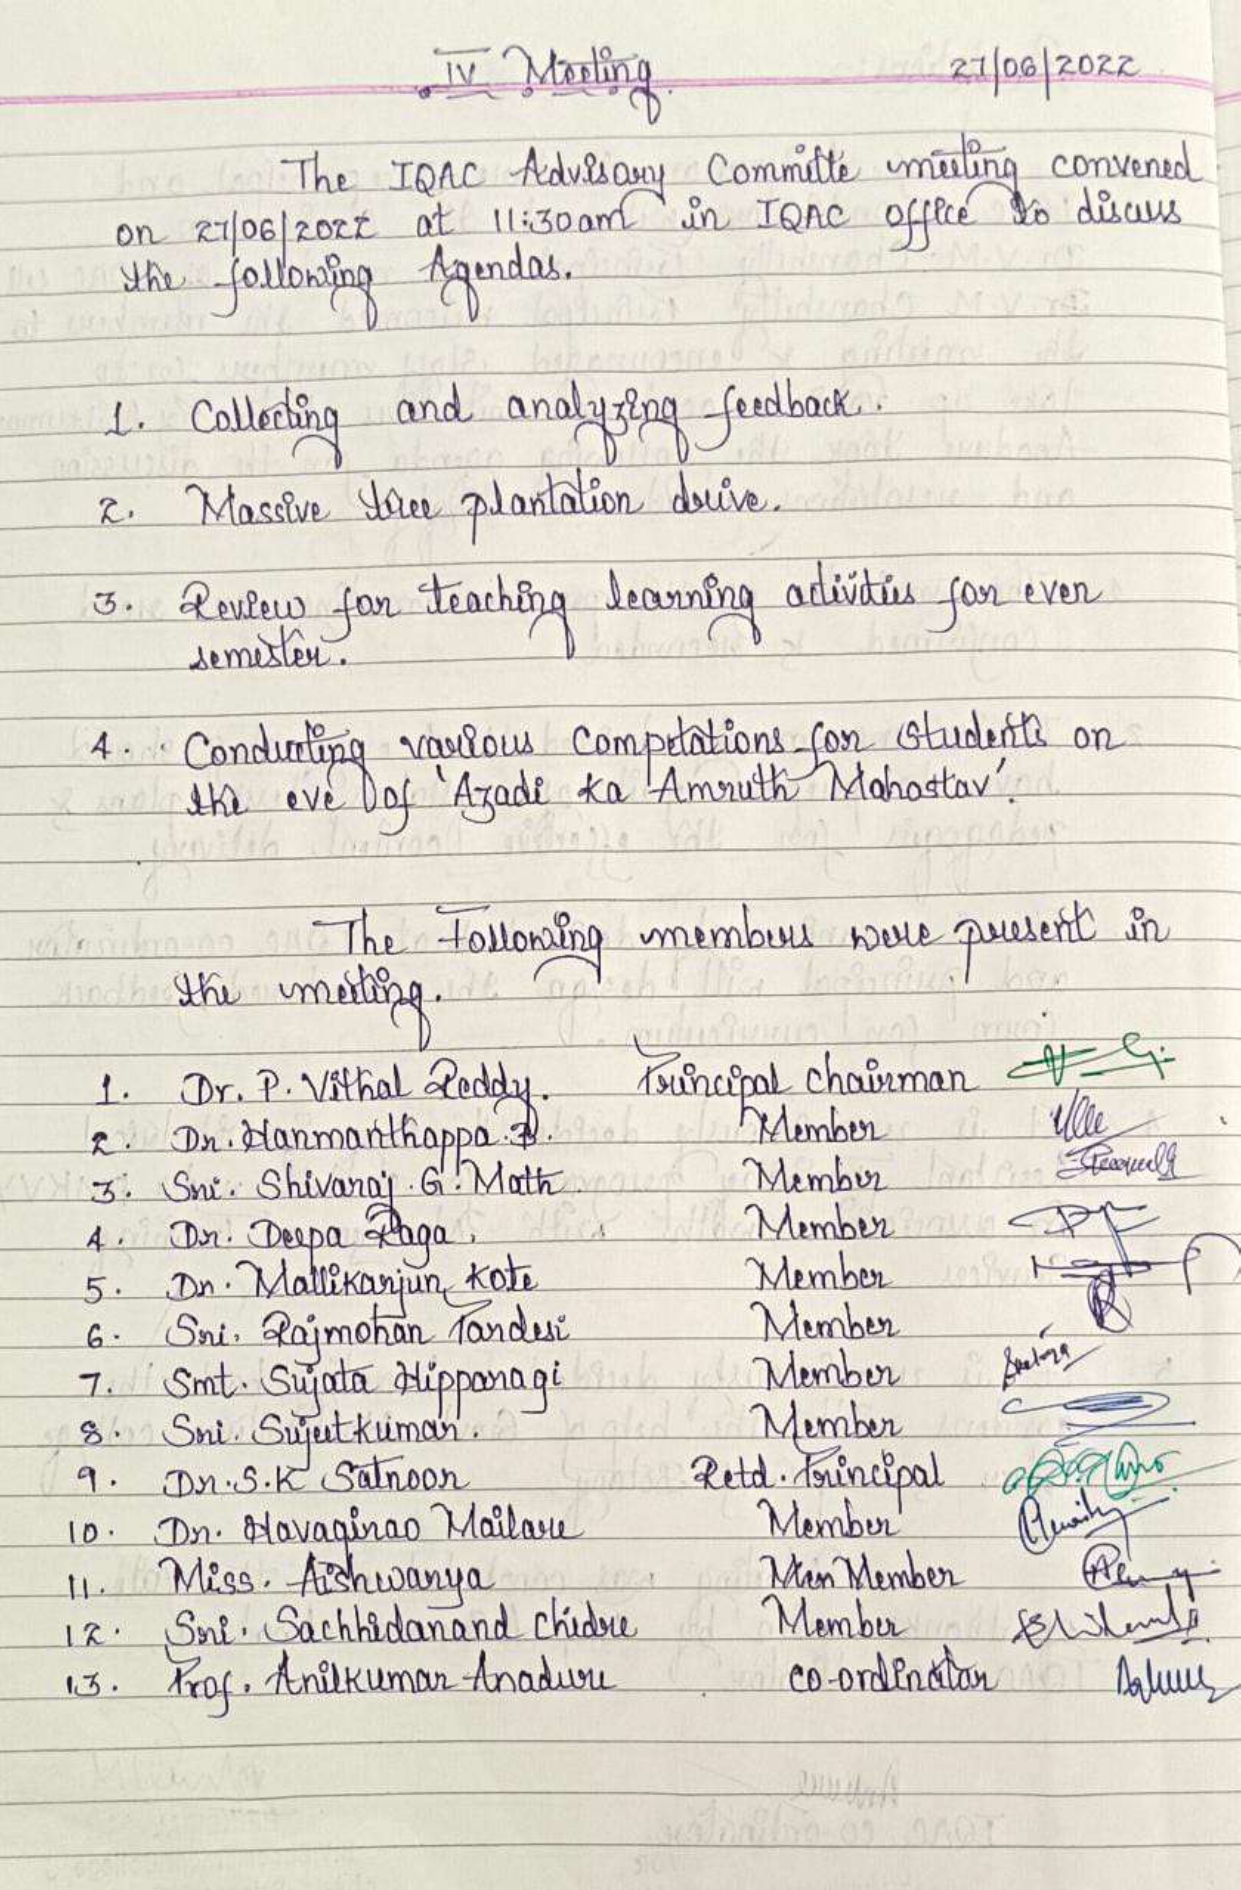 IV Meeting 27/06/2022
The IQAC Advisary Committe meeting convened
on 27/06/2022 at 11:30am in IQAC office to discuss
the following Agendas.
1. Collecting and analyzing feedback.
2. Massive tree plantation drive.
3. Review for teaching learning activities for even
semester.
4. Conducting various Competations for students on
the eve of 'Azadi ka Amruth Mahostav'.
The Following members were present in
the meeting.
1. Dr. P. Vithal Reddy. Principal chairman
2. Dr. Hanmanthappa. B. Member
3. Sri. Shivaraj. G. Math Member
4. Dr. Deepa Raga. Member
5. Dr. Mallikarjun Kote Member
6. Sri. Rajmohan Pardesi Member
7. Smt. Sujata Hippanagi Member
8. Sri. Sujeetkumar. Member
9. Dr. S.K Satnoor Retd. Principal
10. Dr. Havaginao Mailare Member
11. Miss. Aishwarya Member
12. Sri. Sachhidanand Chidre Member
13. Prof. Anilkumar Anadure co-ordinator